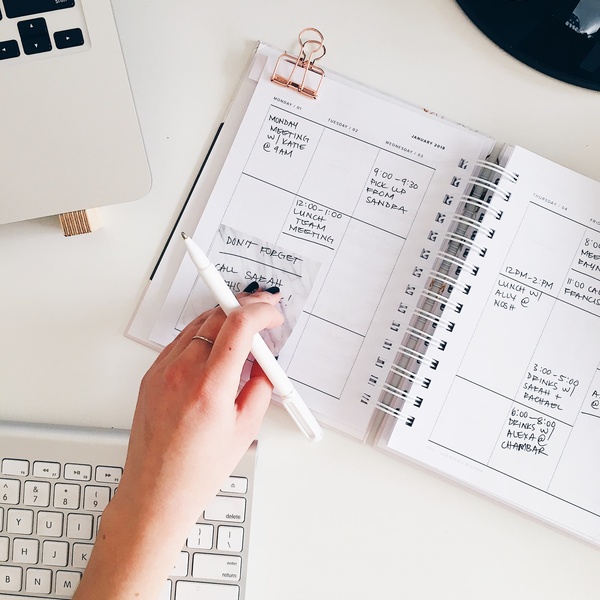 MONDAY / 01
MONDAY
MEETING
W/ KATIE
@ 9AM
TUESDAY / 02
12:00-1:00
LUNCH
TEAM
MEETING
JANUARY 2018
WEDNESDAY / 03
9:00-9:30
PICK UP
FROM
SANDRA
DON'T FORGET
CALL SARAH
THURSDAY / 04
12PM-2PM
LUNCH W/
ALLY @
NOSH
3:00-5:00
DRINKS W/
SARAH +
RACHAEL
6:00-8:00
DRINKS W/
ALEXA @
CHAMBAR
11:00
6
& 7
* 8
( 9
delete
Y U I
enter
return
H J K
B N M